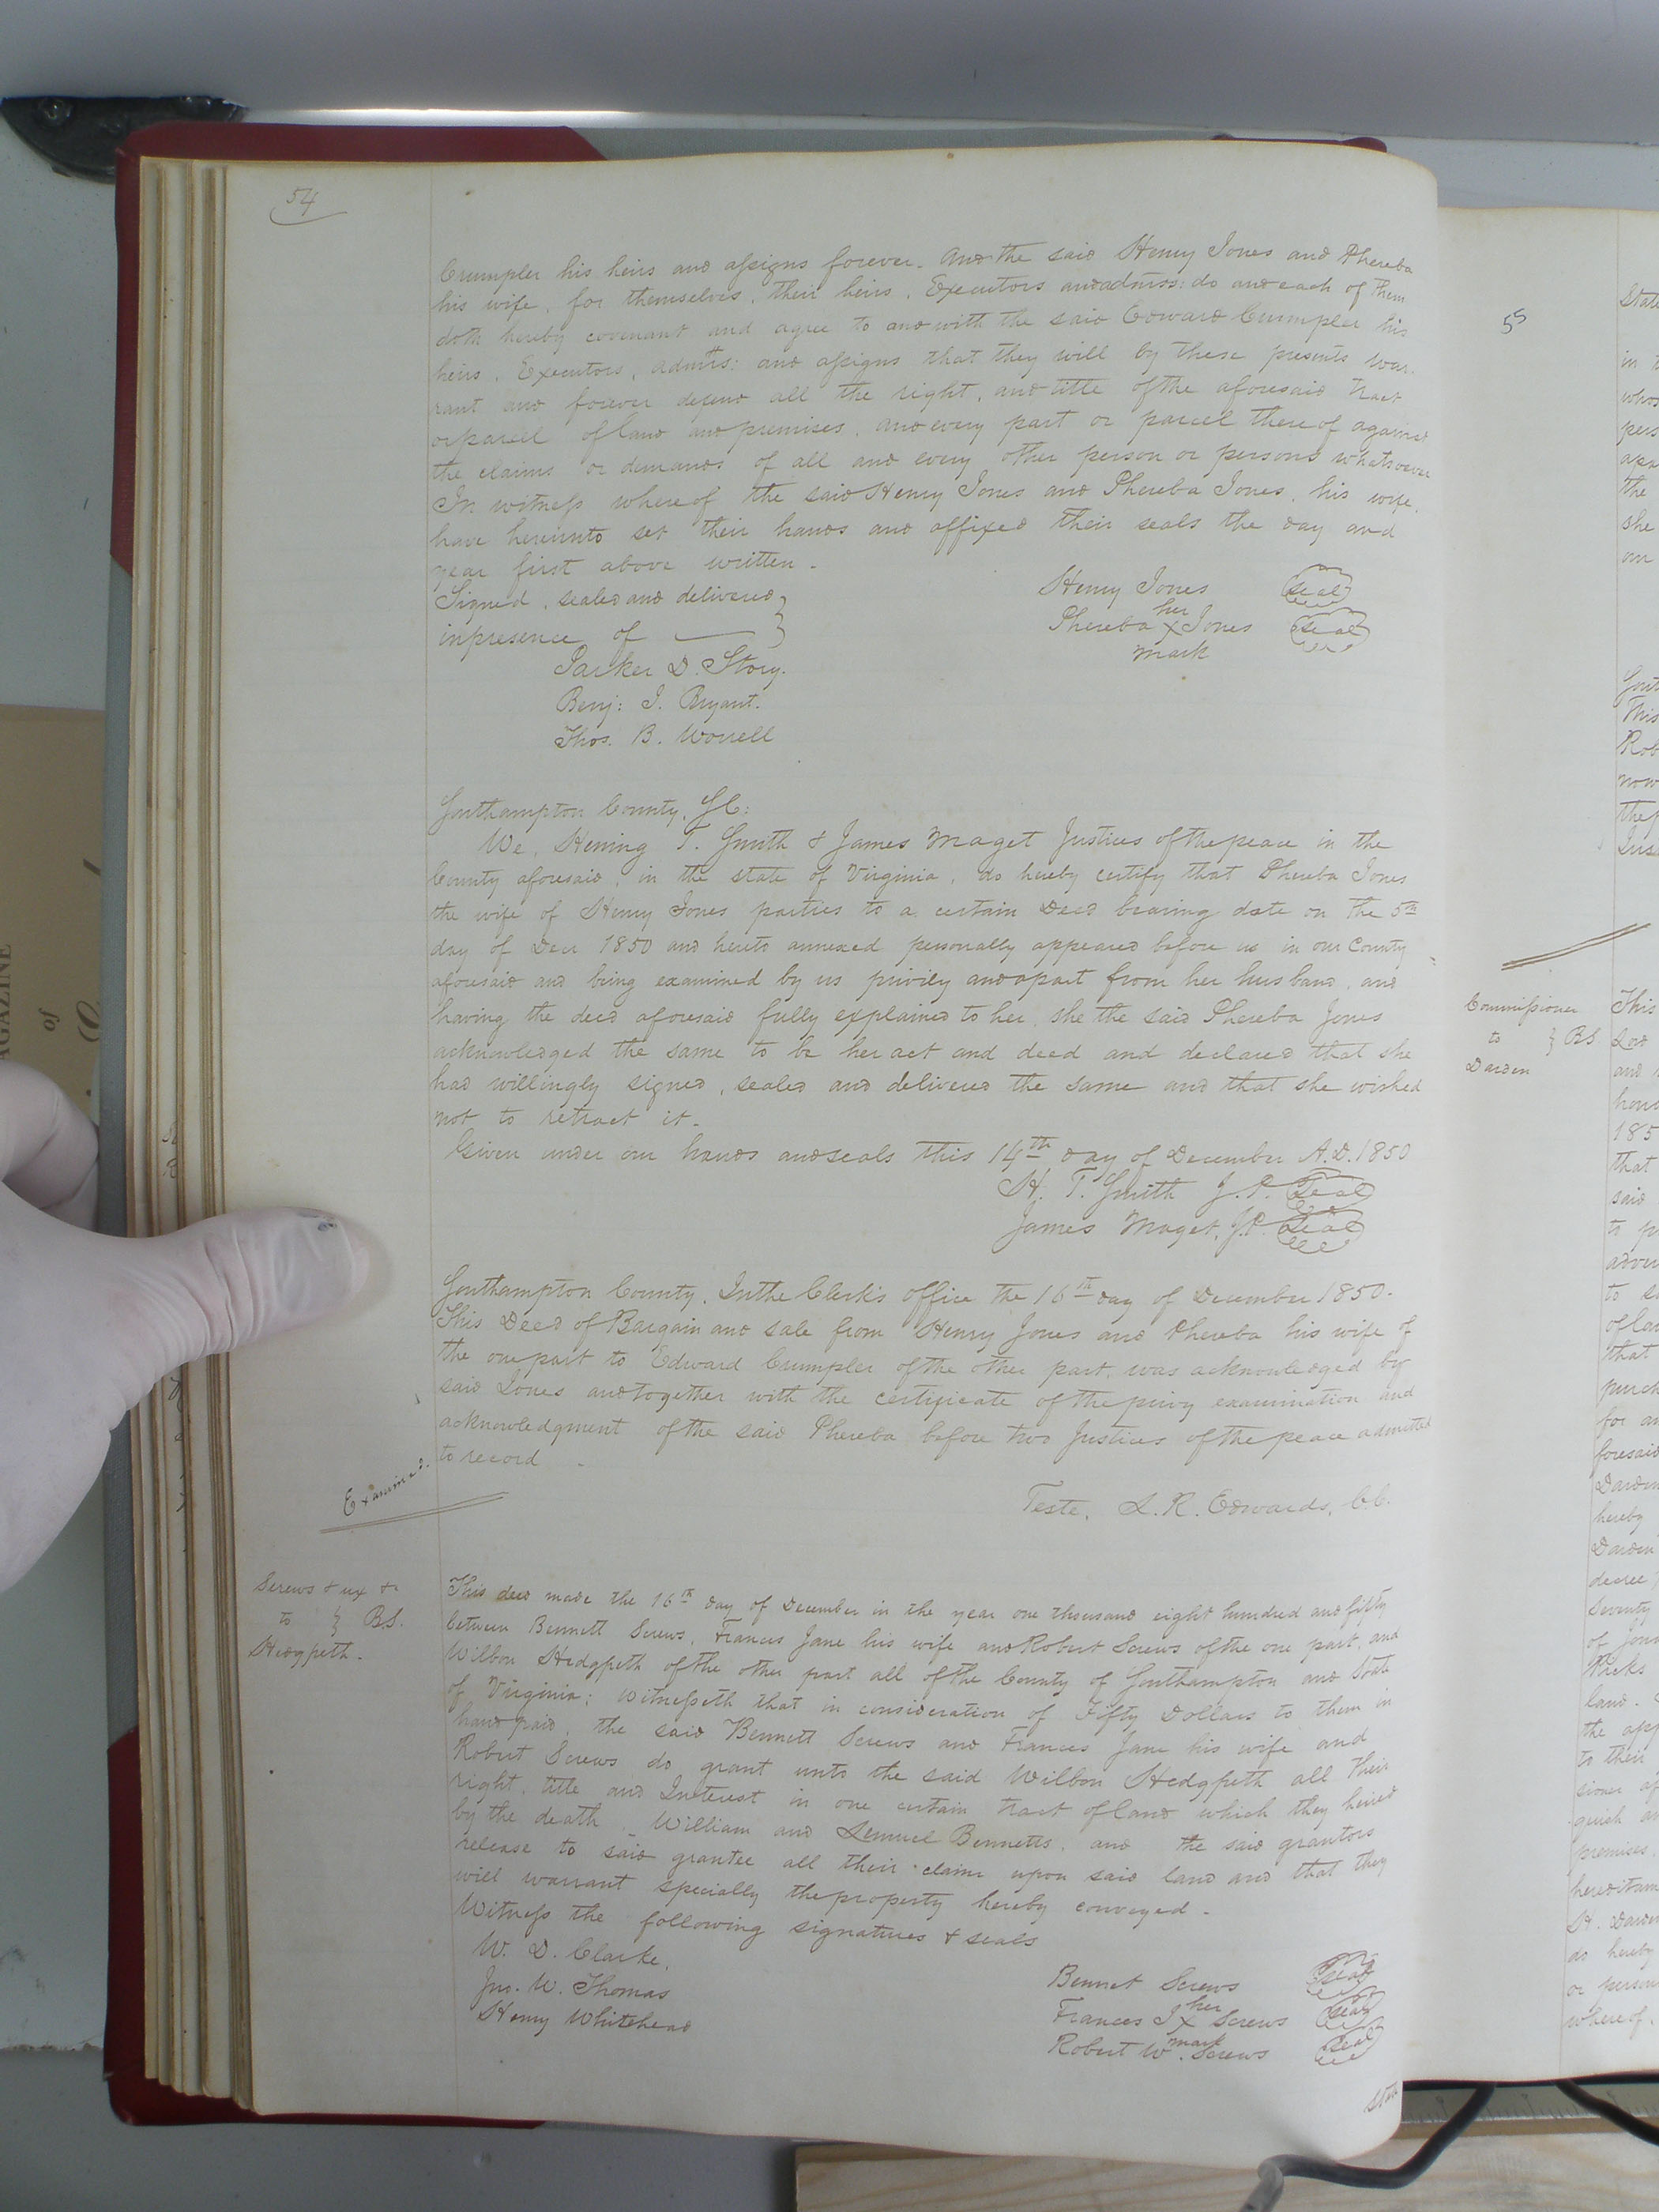 54
Crumpler his heirs and assigns forever. And the said Henry Jones and Phereba
his wife, for themselves, their heirs, Executors and admrs: do and each of them
doth hereby covenant and agree to and with the said Edward Crumpler his
heirs, Executors, admrs: and assigns that they will by these presents war-
rant and forever defend all the right, and title of the aforesaid tract
or parcel of land and premises, and every part or parcel thereof against
the claims or demands of all and every other person or persons whatsoever
In witness whereof the said Henry Jones and Phereba Jones, his wife,
have hereunto set their hands and affixed their seals the day and
year first above written.
Signed, sealed and delivered }
in presence of }
Henry Jones Seal
Phereba her X mark Jones Seal
Parker D. Story.
Benj: J. Bryant.
Thos. B. Worrell
Southampton County, SC:
We, Hening T. Smith & James Maget Justices of the peace in the
County aforesaid, in the state of Virginia, do hereby certify that Phereba Jones
the wife of Henry Jones parties to a certain Deed bearing date on the 5th
day of Decr 1850 and hereto annexed personally appeared before us in our County
aforesaid and being examined by us privily and apart from her husband, and
having the deed aforesaid fully explained to her, she the said Phereba Jones
acknowledged the same to be her act and deed and declared that she
had willingly signed, sealed and delivered the same and that she wished
not to retract it.
Given under our hands and seals this 14th day of December A.D. 1850
H. T. Smith J.P. Seal
James Maget, J.P. Seal
Southampton County, In the Clerk's office the 16th day of December 1850.
This Deed of Bargain and sale from Henry Jones and Phereba his wife of
the one part to Edward Crumpler of the other part, was acknowledged by
said Jones and together with the certificate of the privy examination and
acknowledgment of the said Phereba before two Justices of the peace admitted
to record.
Examined.
Teste, L. R. Edwards, C.C.
Screws & ux &c
to } BS.
Hedgpeth.
This deed made the 16th day of December in the year one thousand eight hundred and fifty
between Bennett Screws, Frances Jane his wife and Robert Screws of the one part, and
Wilbon Hedgpeth of the other part all of the County of Southampton and State
of Virginia; Witnesseth that in consideration of Fifty Dollars to them in
hand paid, the said Bennett Screws and Frances Jane his wife and
Robert Screws do grant unto the said Wilbon Hedgpeth all their
right, title and Interest in one certain tract of land which they heired
by the death William and Lemuel Bennetts, and the said grantors
release to said grantee all their claim upon said land and that they
will warrant specially the property hereby conveyed.
Witness the following signatures & seals
W. D. Clarke,
Jno. W. Thomas
Henry Whitehead
Bennet Screws Seal
Frances J. her X mark Screws Seal
Robert W. Screws Seal
State
55
Commissioner
to } BS
Darden
State
in
the
she
our
This
Rob
now
This
and
185
that
said
to
to
of
that
for
foresaid
Darden
hereby
Darden
decree
Seventy
of
land.
the
to their
premises
do hereby
or
whereof.